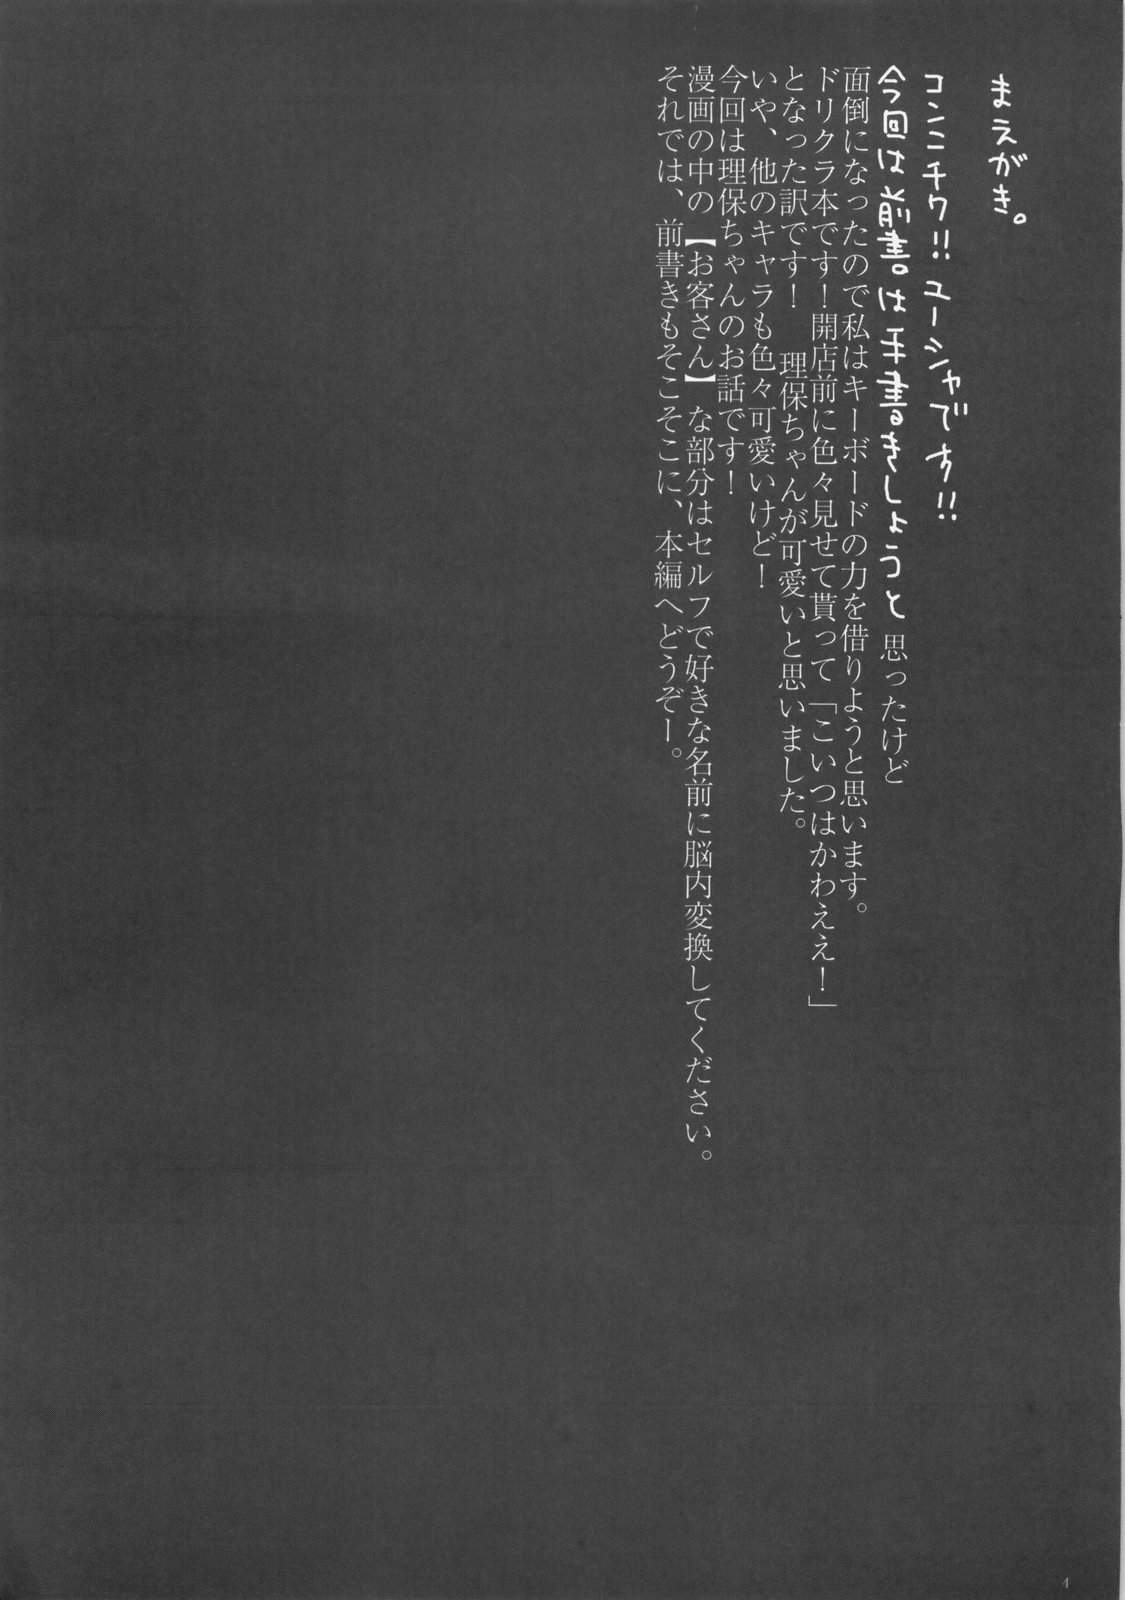 まえがき。
コンニチワ!!ユーシャです!!
今回は前書。は手書きしようと思ったけど
面倒になったので私はキーボードの力を借りようと思います。
ドリクラ本です！開店前に色々見せて貰って「こいつはかわええ！」
となった訳です！　理保ちゃんが可愛いと思いました。
いや、他のキャラも色々可愛いけど！
今回は理保ちゃんのお話です！
漫画の中の【お客さん】な部分はセルフで好きな名前に脳内変換してください。
それでは、前書きもそこそこに、本編へどうぞー。
4